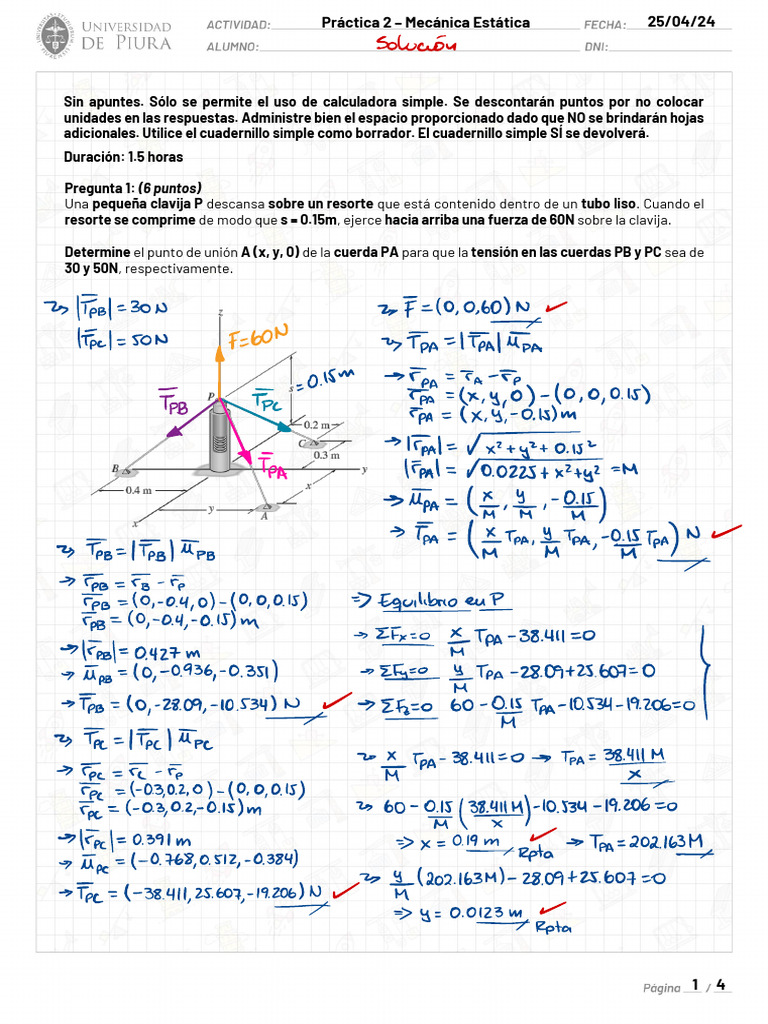 UNIVERSIDAD DE PIURA
ACTIVIDAD: Práctica 2 – Mecánica Estática FECHA: 25/04/24
ALUMNO: Solución DNI:
Sin apuntes. Sólo se permite el uso de calculadora simple. Se descontarán puntos por no colocar
unidades en las respuestas. Administre bien el espacio proporcionado dado que NO se brindarán hojas
adicionales. Utilice el cuadernillo simple como borrador. El cuadernillo simple SÍ se devolverá.
Duración: 1.5 horas
Pregunta 1: (6 puntos)
Una pequeña clavija P descansa sobre un resorte que está contenido dentro de un tubo liso. Cuando el
resorte se comprime de modo que s = 0.15m, ejerce hacia arriba una fuerza de 60N sobre la clavija.
Determine el punto de unión A (x, y, 0) de la cuerda PA para que la tensión en las cuerdas PB y PC sea de
30 y 50N, respectivamente.
|T̅PB| = 30N
|T̅PC| = 50N
z
F=60N
P
s = 0.15m
T̅PB
T̅PC
T̅PA
0.2 m
C
0.3 m
B
y
0.4 m
x
y
x
A
T̅PB = |T̅PB| μ̅PB
→ r̅PB = r̅B - r̅P
r̅PB = (0, -0.4, 0) - (0, 0, 0.15)
r̅PB = (0, -0.4, -0.15) m
→ |r̅PB| = 0.427 m
→ μ̅PB = (0, -0.936, -0.351)
→ T̅PB = (0, -28.09, -10.534) N
T̅PC = |T̅PC| μ̅PC
→ r̅PC = r̅C - r̅P
r̅PC = (-0.3, 0.2, 0) - (0, 0, 0.15)
r̅PC = (-0.3, 0.2, -0.15) m
→ |r̅PC| = 0.391 m
→ μ̅PC = (-0.768, 0.512, -0.384)
→ T̅PC = (-38.411, 25.607, -19.206) N
F̅ = (0, 0, 60) N
T̅PA = |T̅PA| μ̅PA
→ r̅PA = r̅A - r̅P
r̅PA = (x, y, 0) - (0, 0, 0.15)
r̅PA = (x, y, -0.15) m
→ |r̅PA| = √(x² + y² + 0.15²)
|r̅PA| = √(0.0225 + x² + y²) = M
→ μ̅PA = (x/M, y/M, -0.15/M)
→ T̅PA = (x/M TPA, y/M TPA, -0.15/M TPA) N
⇒ Equilibrio en P
→ ΣFx=0 x/M TPA - 38.411 = 0
→ ΣFy=0 y/M TPA - 28.09 + 25.607 = 0
→ ΣFz=0 60 - 0.15/M TPA - 10.534 - 19.206 = 0
x/M TPA - 38.411 = 0 → TPA = 38.411 M/x
60 - 0.15/M (38.411 M/x) - 10.534 - 19.206 = 0
⇒ x = 0.19 m Rpta → TPA = 202.163 M
y/M (202.163 M) - 28.09 + 25.607 = 0
⇒ y = 0.0123 m Rpta
Página 1 / 4